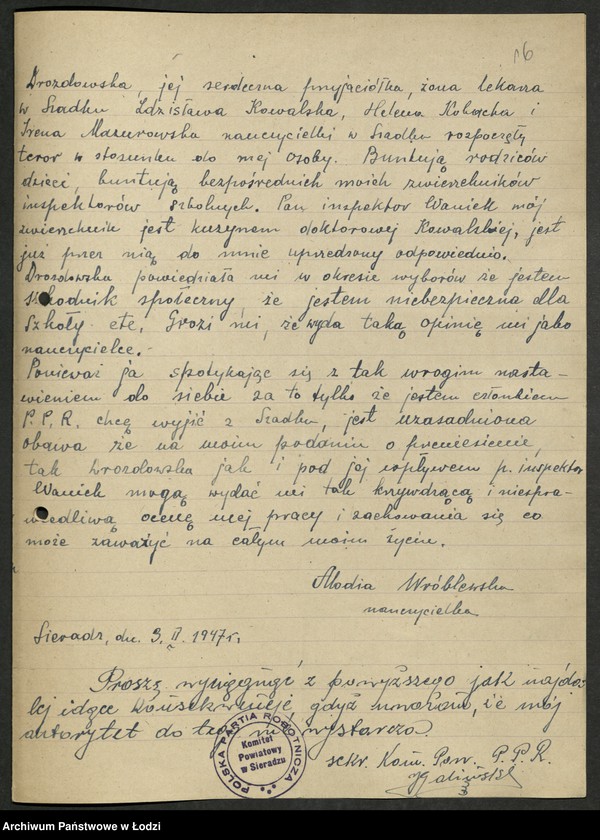 16
Drozdowska, jej serdeczna przyjaciółka, żona lekarza
w Szadku Zdzisława Kowalska, Helena i
Irena Mazurowska nauczycielki w Szadku rozpoczęły
teror w stosunku do mej osoby. Buntują rodziców
dzieci, buntują bezpośrednich moich zwierzchników
inspektorów szkolnych. Pan inspektor Waniek mój
zwierzchnik jest kuzynem doktorowej Kowalskiej, jest
już przez nią do mnie uprzedzony odpowiednio.
Drozdowska powiedziała mi w okresie wyborów że jestem
szkodnik społeczny, że jestem niebezpieczna dla
Szkoły etc. Grozi mi, że wyda taką opinię mi jako
nauczycielce.-
Ponieważ ja spotykając się z tak wrogim nasta-
wieniem do siebie za to tylko że jestem członkiem
P.P.R. chcę wyjść z Szadku, jest uzasadniona
obawa że na moim podaniu o przeniesienie,
tak Drozdowska jak i pod jej wpływem p. inspektor
Waniek mogą wydać mi tak krzywdzącą i niespra-
wiedliwą ocenę mej pracy i zachowania się co
może zaważyć na całym moim życiu.
Alodia Wróblewska
nauczycielka
Sieradz, dn. 3. II. 1947r.
Proszę wyciągnąć z powyższego jak najda-
lej idące konsekwencje gdyż uważam, że mój
autorytet do tego nie wystarcza.
sekr. Kom. Pow. P.P.R.
POLSKA PARTIA ROBOTNICZA
Komitet
Powiatowy
w Sieradzu
Archiwum Państwowe w Łodzi